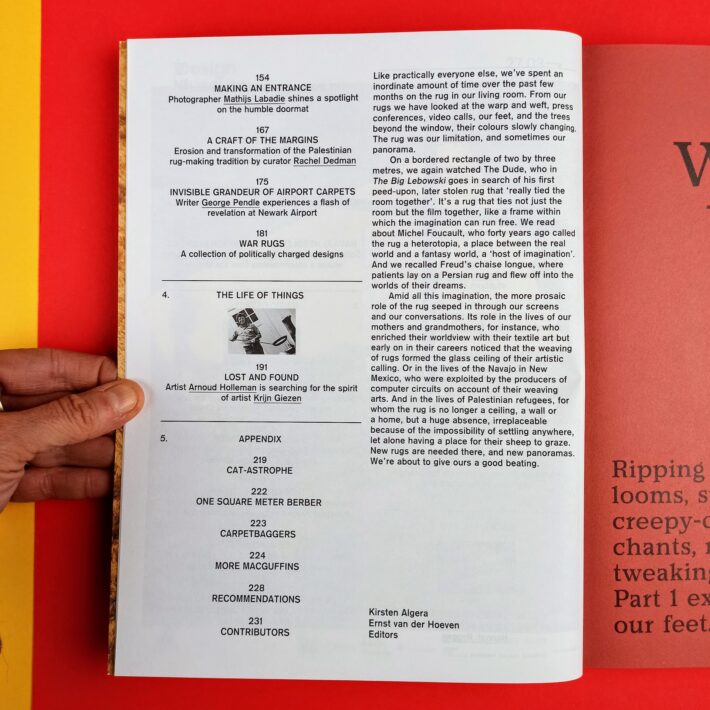 154
MAKING AN ENTRANCE
Photographer Mathijs Labadie shines a spotlight
on the humble doormat
167
A CRAFT OF THE MARGINS
Erosion and transformation of the Palestinian
rug-making tradition by curator Rachel Dedman
175
INVISIBLE GRANDEUR OF AIRPORT CARPETS
Writer George Pendle experiences a flash of
revelation at Newark Airport
181
WAR RUGS
A collection of politically charged designs
4. THE LIFE OF THINGS
191
LOST AND FOUND
Artist Arnoud Holleman is searching for the spirit
of artist Krijn Giezen
5. APPENDIX
219
CAT-ASTROPHE
222
ONE SQUARE METER BERBER
223
CARPETBAGGERS
224
MORE MACGUFFINS
228
RECOMMENDATIONS
231
CONTRIBUTORS
Like practically everyone else, we've spent an
inordinate amount of time over the past few
months on the rug in our living room. From our
rugs we have looked at the warp and weft, press
conferences, video calls, our feet, and the trees
beyond the window, their colours slowly changing.
The rug was our limitation, and sometimes our
panorama.
On a bordered rectangle of two by three
metres, we again watched The Dude, who in
The Big Lebowski goes in search of his first
peed-upon, later stolen rug that 'really tied the
room together'. It's a rug that ties not just the
room but the film together, like a frame within
which the imagination can run free. We read
about Michel Foucault, who forty years ago called
the rug a heterotopia, a place between the real
world and a fantasy world, a 'host of imagination'.
And we recalled Freud's chaise longue, where
patients lay on a Persian rug and flew off into the
worlds of their dreams.
Amid all this imagination, the more prosaic
role of the rug seeped in through our screens
and our conversations. Its role in the lives of our
mothers and grandmothers, for instance, who
enriched their worldview with their textile art but
early on in their careers noticed that the weaving
of rugs formed the glass ceiling of their artistic
calling. Or in the lives of the Navajo in New
Mexico, who were exploited by the producers of
computer circuits on account of their weaving
arts. And in the lives of Palestinian refugees, for
whom the rug is no longer a ceiling, a wall or
a home, but a huge absence, irreplaceable
because of the impossibility of settling anywhere,
let alone having a place for their sheep to graze.
New rugs are needed there, and new panoramas.
We're about to give ours a good beating.
Kirsten Algera
Ernst van der Hoeven
Editors
Ripping
looms,
creepy-
chants,
tweaking
Part 1
our feet